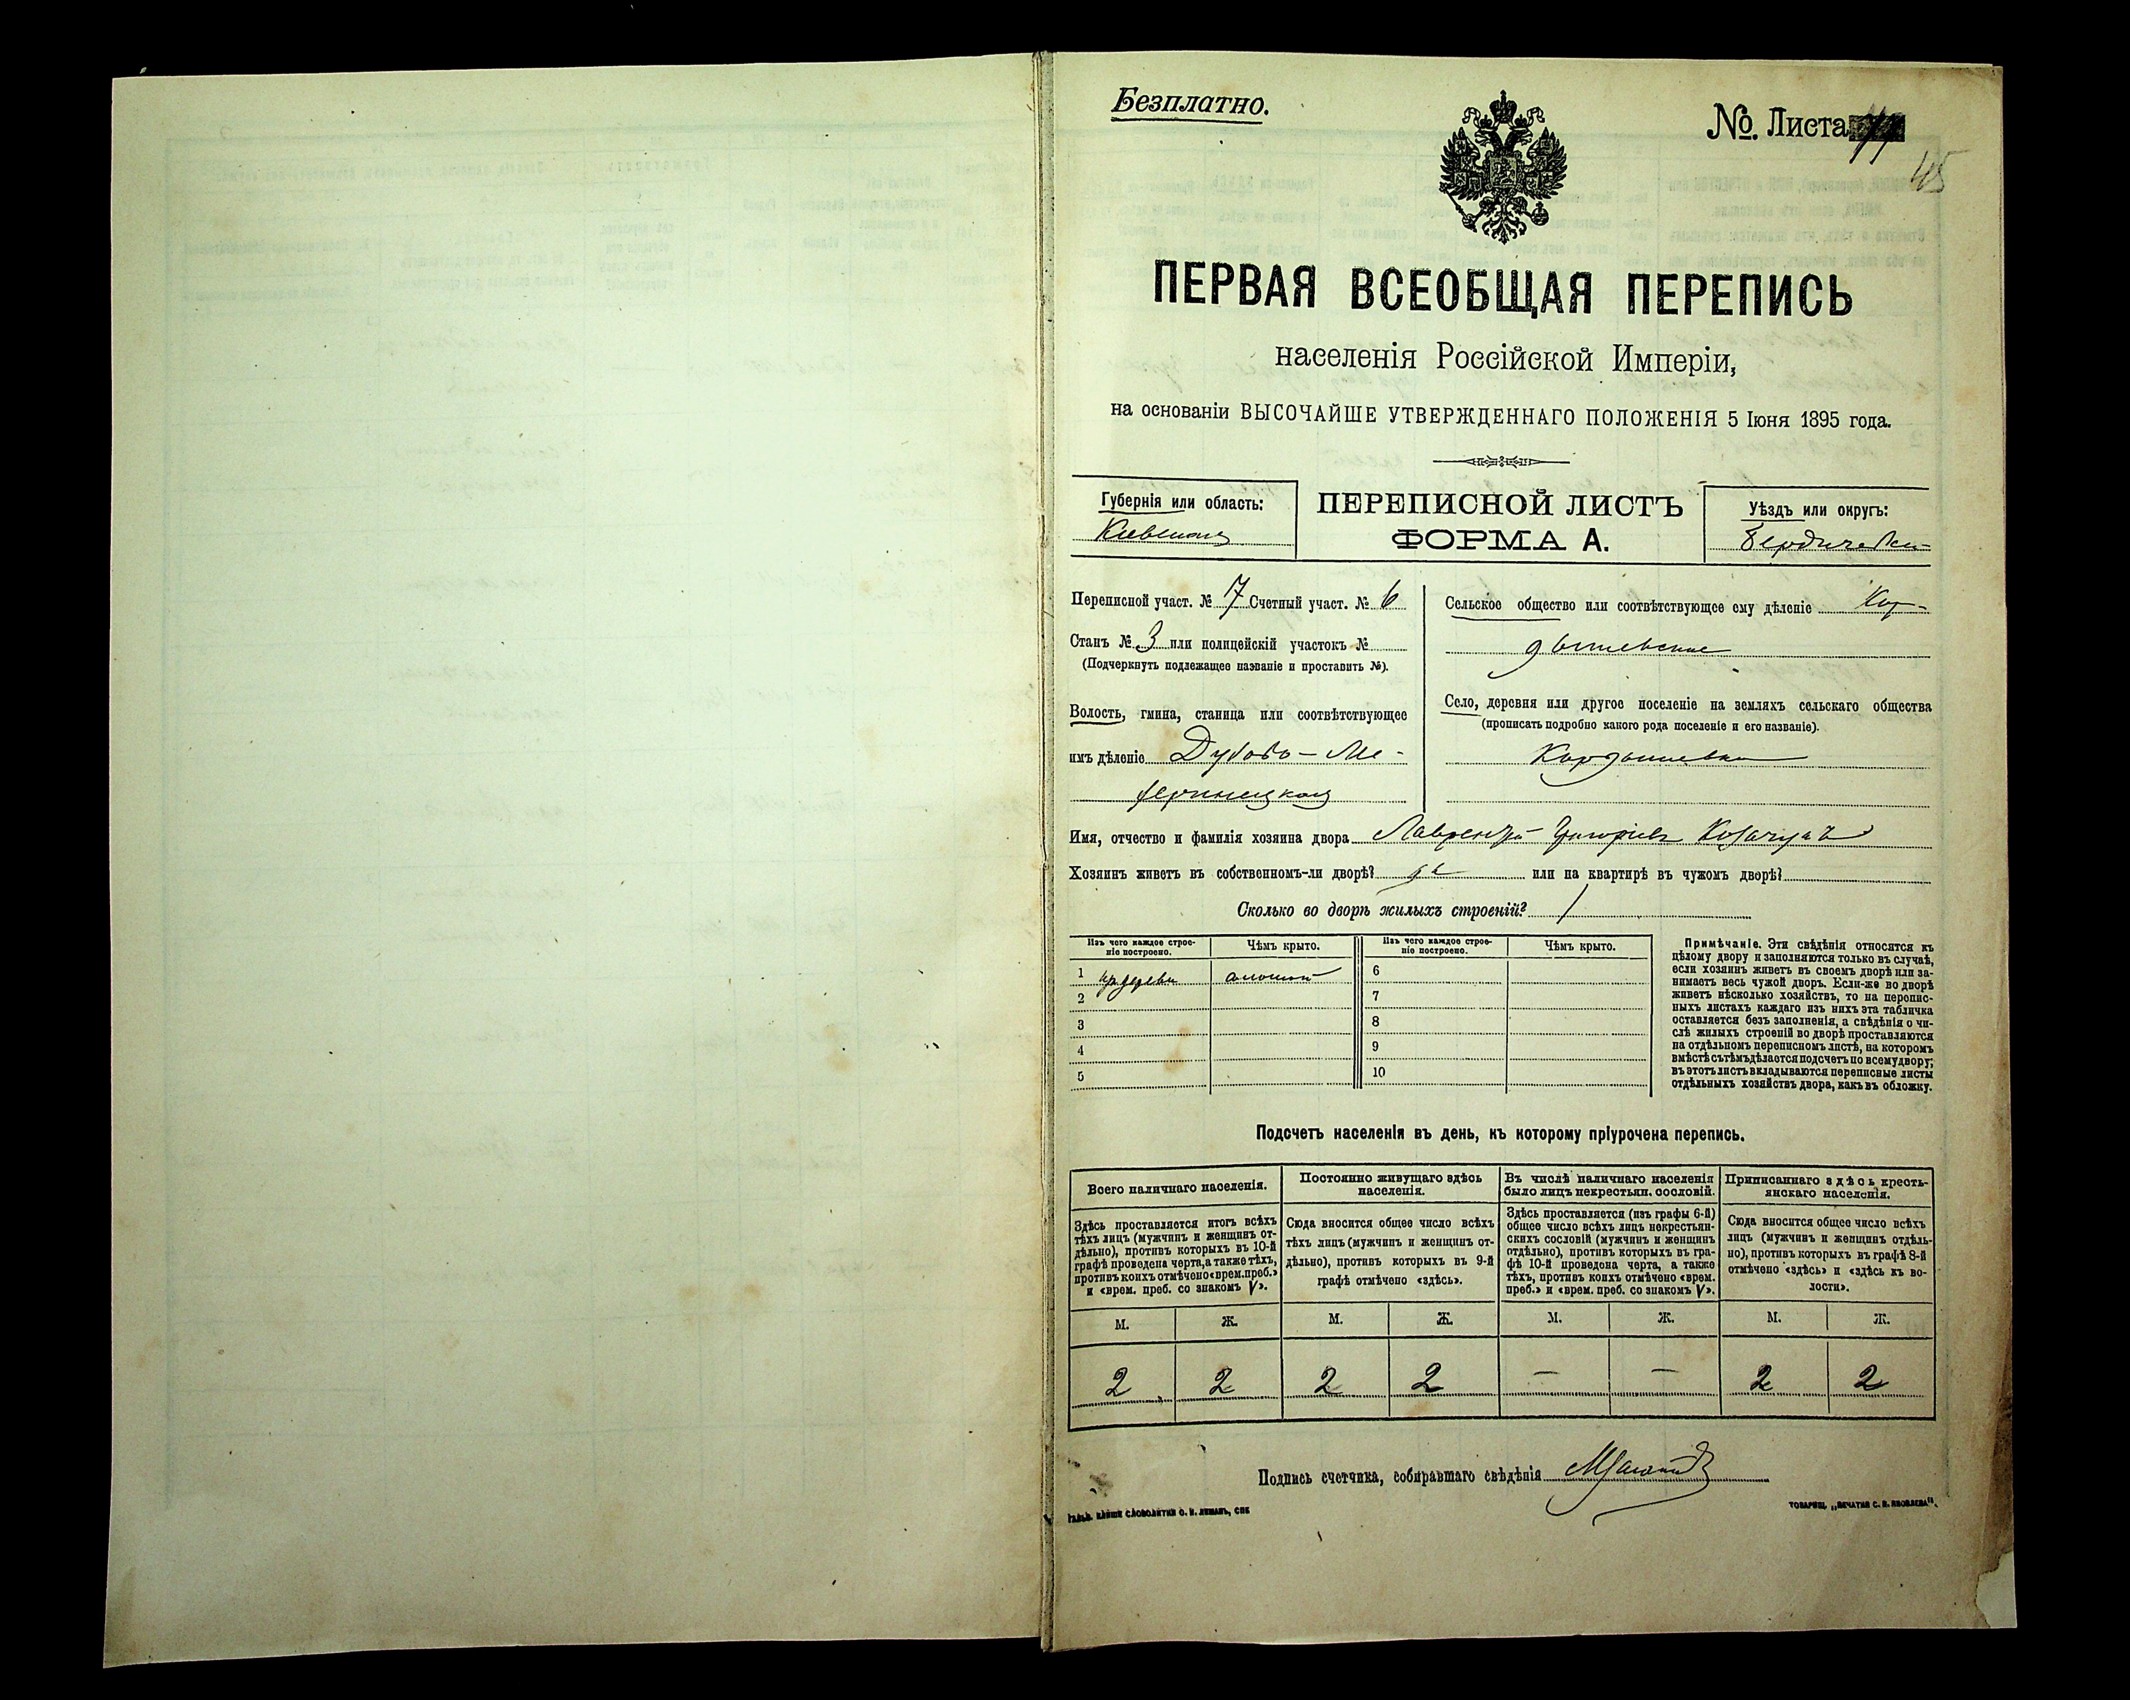 Безплатно.
№. Листа
45
ПЕРВАЯ ВСЕОБЩАЯ ПЕРЕПИСЬ
населенія Россійской Имперіи,
на основаніи ВЫСОЧАЙШЕ УТВЕРЖДЕННАГО ПОЛОЖЕНІЯ 5 Іюня 1895 года.
Губернія или область:
Кіевская
ПЕРЕПИСНОЙ ЛИСТЪ
ФОРМА А.
Уѣздъ или округъ:
Бердичевскій
Переписной участ. № 7 Счетный участ. № 6
Станъ № 3 или полицейскій участокъ №
(Подчеркнуть подлежащее названіе и проставить №).
Волость, гмина, станица или соотвѣтствующее
имъ дѣленіе Дубово-Ме-
Сельское общество или соотвѣтствующее ему дѣленіе Кор-
дышевское
Село, деревня или другое поселеніе на земляхъ сельскаго общества
(прописать подробно какого рода поселеніе и его названіе).
Кордышевка
Имя, отчество и фамилія хозяина двора Лаврентій Григоріевъ Козачукъ
Хозяинъ живетъ въ собственномъ-ли дворѣ? да или на квартирѣ въ чужомъ дворѣ?
Сколько во дворѣ жилыхъ строеній? 1
Изъ чего каждое строе-
ніе построено.
Чѣмъ крыто.
Изъ чего каждое строе-
ніе построено.
Чѣмъ крыто.
1 изъ дерева соломой
2
3
4
5
6
7
8
9
10
Примѣчаніе. Эти свѣдѣнія относятся къ
цѣлому двору и заполняются только въ случаѣ,
если хозяинъ живетъ въ своемъ дворѣ или за-
нимаетъ весь чужой дворъ. Если-же во дворѣ
живетъ нѣсколько хозяйствъ, то на перепис-
ныхъ листахъ каждаго изъ нихъ эта табличка
оставляется безъ заполненія, а свѣдѣнія о чи-
слѣ жилыхъ строеній во дворѣ проставляются
на отдѣльномъ переписномъ листѣ, на которомъ
вмѣстѣ съ тѣмъ дѣлается подсчетъ по всему двору;
въ этотъ листъ вкладываются переписные листы
отдѣльныхъ хозяйствъ двора, какъ въ обложку.
Подсчетъ населенія въ день, къ которому пріурочена перепись.
Всего наличнаго населенія.
Здѣсь проставляется итогъ всѣхъ
тѣхъ лицъ (мужчинъ и женщинъ от-
дѣльно), противъ которыхъ въ 10-й
графѣ проведена черта, а также тѣхъ,
противъ коихъ отмѣчено «врем. преб.»
и «врем. преб. со знакомъ V».
М. Ж.
2 2
Постоянно живущаго здѣсь
населенія.
Сюда вносится общее число всѣхъ
тѣхъ лицъ (мужчинъ и женщинъ от-
дѣльно), противъ которыхъ въ 9-й
графѣ отмѣчено «здѣсь».
М. Ж.
2 2
Въ числѣ наличнаго населенія
было лицъ некрестьян. сословій.
Здѣсь проставляется (изъ графы 6-й)
общее число всѣхъ лицъ некрестьян-
скихъ сословій (мужчинъ и женщинъ
отдѣльно), противъ которыхъ въ гра-
фѣ 10-й проведена черта, а также
тѣхъ, противъ коихъ отмѣчено «врем.
преб.» и «врем. преб. со знакомъ V».
М. Ж.
— —
Приписаннаго здѣсь кресть-
янскаго населенія.
Сюда вносится общее число всѣхъ
лицъ (мужчинъ и женщинъ отдѣль-
но), противъ которыхъ въ графѣ 8-й
отмѣчено «здѣсь» и «здѣсь въ во-
лости».
М. Ж.
2 2
Подпись счетчика, собиравшаго свѣдѣнія
СЛОВОЛИТНИ О. И. ЛЕМАНЪ, СПБ
ТОВАРИЩ. „ПЕЧАТНЯ С. П. ЯКОВЛЕВА".